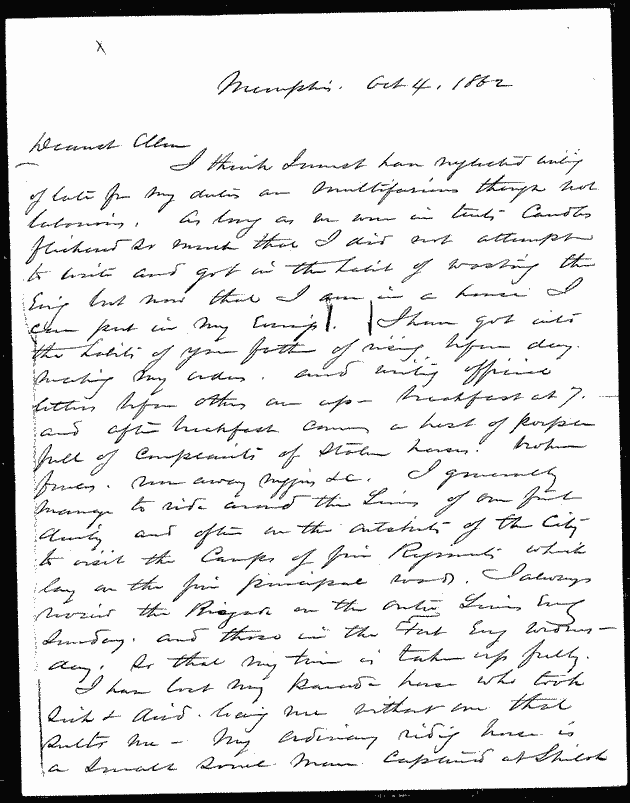 Memphis. Oct 4, 1862
Dearest Ellen
I think I must have neglected writing
of late for my duties are multifarious though not
laborious. As long as we were in tents Candles
flickered so much that I did not attempt
to write and got in the habit of wasting the
Evg but now that I am in a house I
can put in my Evenings. I have got into
the habits of your father of rising before day.
making my orders. and writing official
letters before others are up - breakfast at 7.
and after breakfast comes a host of people
full of complaints of stolen horses. broken
fences. run away niggers &c. I generally
manage to ride around the Lines of our fort
daily and often on the outskirts of the City
to visit the Camps of five Regiments which
lay on the five principal roads. I always
the Brigade on the outer Lines Evry
Sunday. and those in the Fort Evry Wednes-
day. So that my time is taken up fully.
I have lost my Parade horse who took
sick & died. leaving me without one that
suits me - My ordinary riding horse is
a small sorrel mare captured at Shiloh